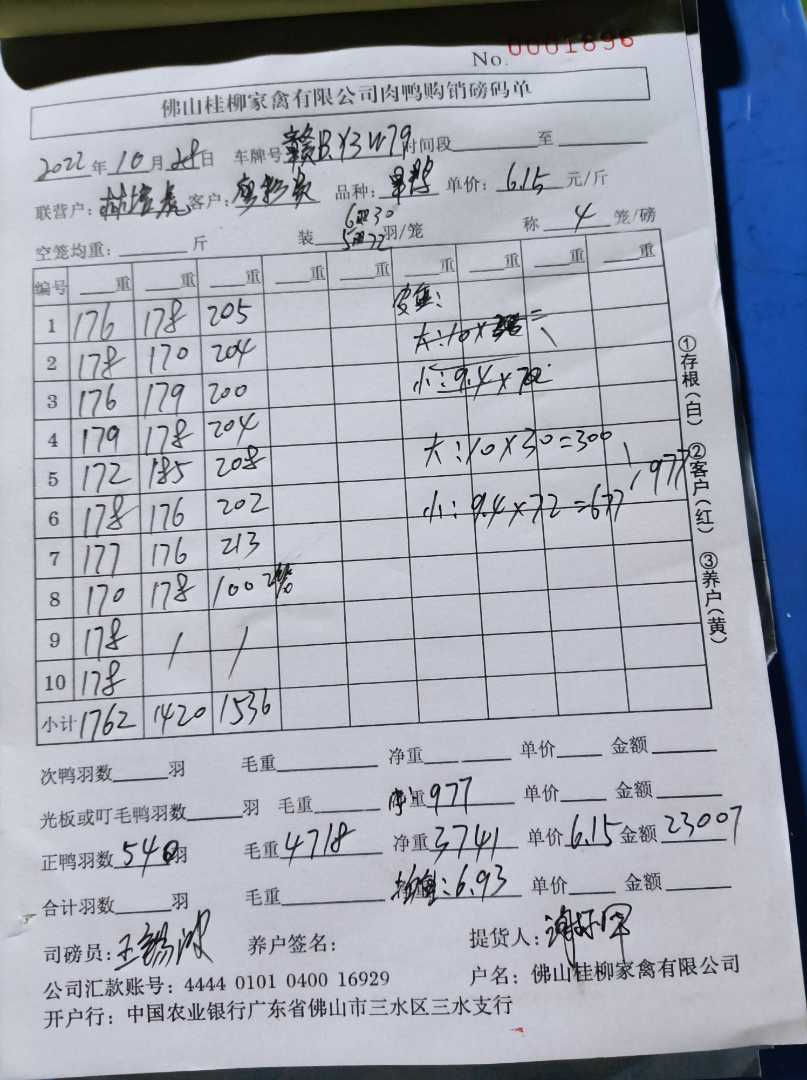 No. 0001896
佛山桂柳家禽有限公司肉鸭购销磅码单
2022年10月28日 车牌号 赣B.Y3W79 时间段 至
联营户: 客户: 品种: 单价: 6.15 元/斤
空笼均重: 斤 装 6 30 5 72 羽/笼 称 4 笼/磅
编号 重 重 重 重 重 重 重 重 重
1 176 178 205 皮重:
2 178 170 204 大:10×
3 176 179 200 小:9.4×72
4 179 178 204
5 172 185 208 大:10×30=300
6 178 176 202 小:9.4×72=677 977
7 177 176 213
8 170 178 100 2笼
9 178 / /
10 178
小计 1762 1420 1536
①存根(白) ②客户(红) ③养户(黄)
次鸭羽数 羽 毛重 净重 单价 金额
光板或叮毛鸭羽数 羽 毛重 重977 单价 金额
正鸭羽数 540羽 毛重4718 净重3741 单价6.15 金额23007
合计羽数 羽 毛重 :6.93 单价 金额
司磅员: 王锡波 养户签名: 提货人:
公司汇款账号:4444 0101 0400 16929 户名:佛山桂柳家禽有限公司
开户行:中国农业银行广东省佛山市三水区三水支行